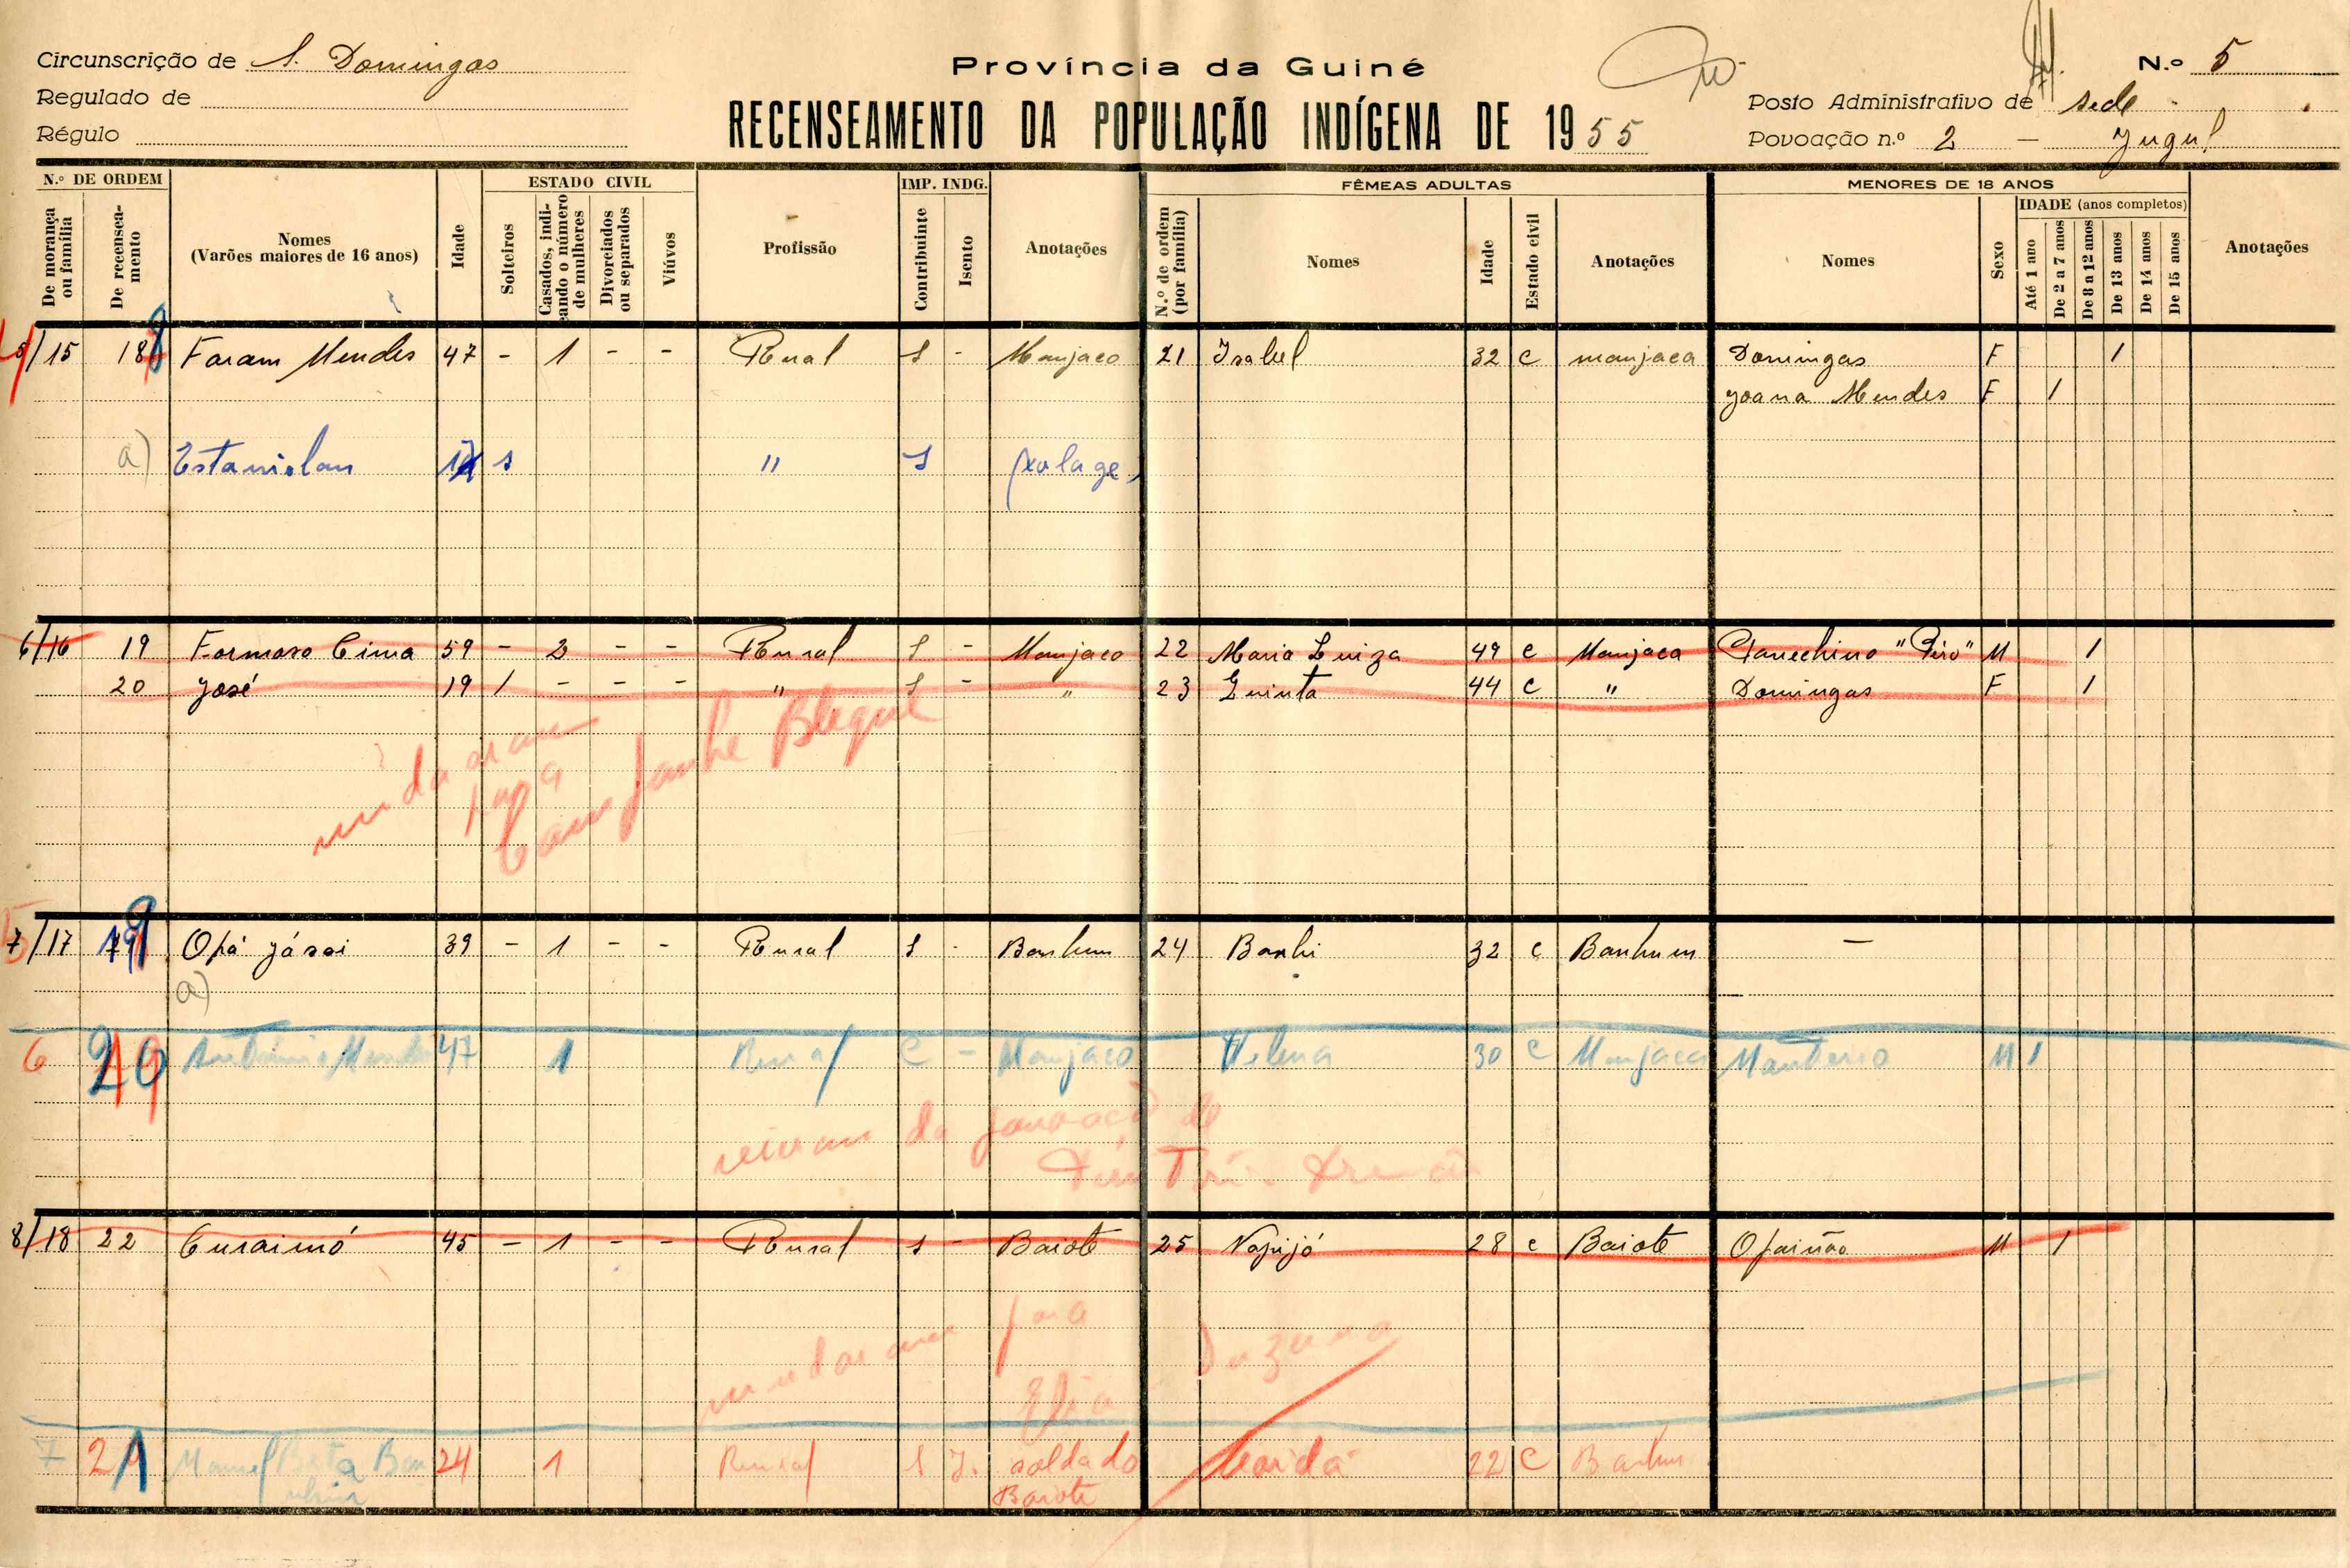 Circunscrição de S. Domingos
Regulado de
Régulo
Província da Guiné
RECENSEAMENTO DA POPULAÇÃO INDÍGENA DE 1955
N.º 5
Posto Administrativo de sede
Povoação n.º 2 — Jugul
N.º DE ORDEM
De morança ou família
De recenseamento
Nomes
(Varões maiores de 16 anos)
Idade
ESTADO CIVIL
Solteiros
Casados, indicando o número de mulheres
Divorciados ou separados
Viúvos
Profissão
IMP. INDG.
Contribuinte
Isento
Anotações
FÊMEAS ADULTAS
N.º de ordem (por família)
Nomes
Idade
Estado civil
Anotações
MENORES DE 18 ANOS
Nomes
Sexo
IDADE (anos completos)
Até 1 ano
De 2 a 7 anos
De 8 a 12 anos
De 13 anos
De 14 anos
De 15 anos
Anotações
5/15 18 Faram Mendes 47 - 1 - - Rural S - Manjaco 21 Isabel 32 C manjaca Domingas F 1
Joana Mendes F 1
a) Estanislau s " S
6/16 19 Formoso Cima 59 - 2 - - Rural S - Manjaco 22 Maria Luiza 49 C Manjaca M 1
20 José 19 1 - - - " S - " 23 Quinta 44 C " Domingas F 1
mudaram
para
7/17 19 Opá Jásai 39 - 1 - - Rural S - Banhum 24 Banhi 32 C Banhum —
a)
6 20 António Mendes 47 1 Rural C - Manjaco Helena 30 C Manjaca Monteiro M 1
vieram da povoação de
8/18 22 Curaimó 45 - 1 - - Rural S - Baiote 25 Napijó 28 C Baiote Opainão M 1
mudaram para
Elia
7 21 Manuel 24 1 Rural soldado 22 C Banhum
Baiote